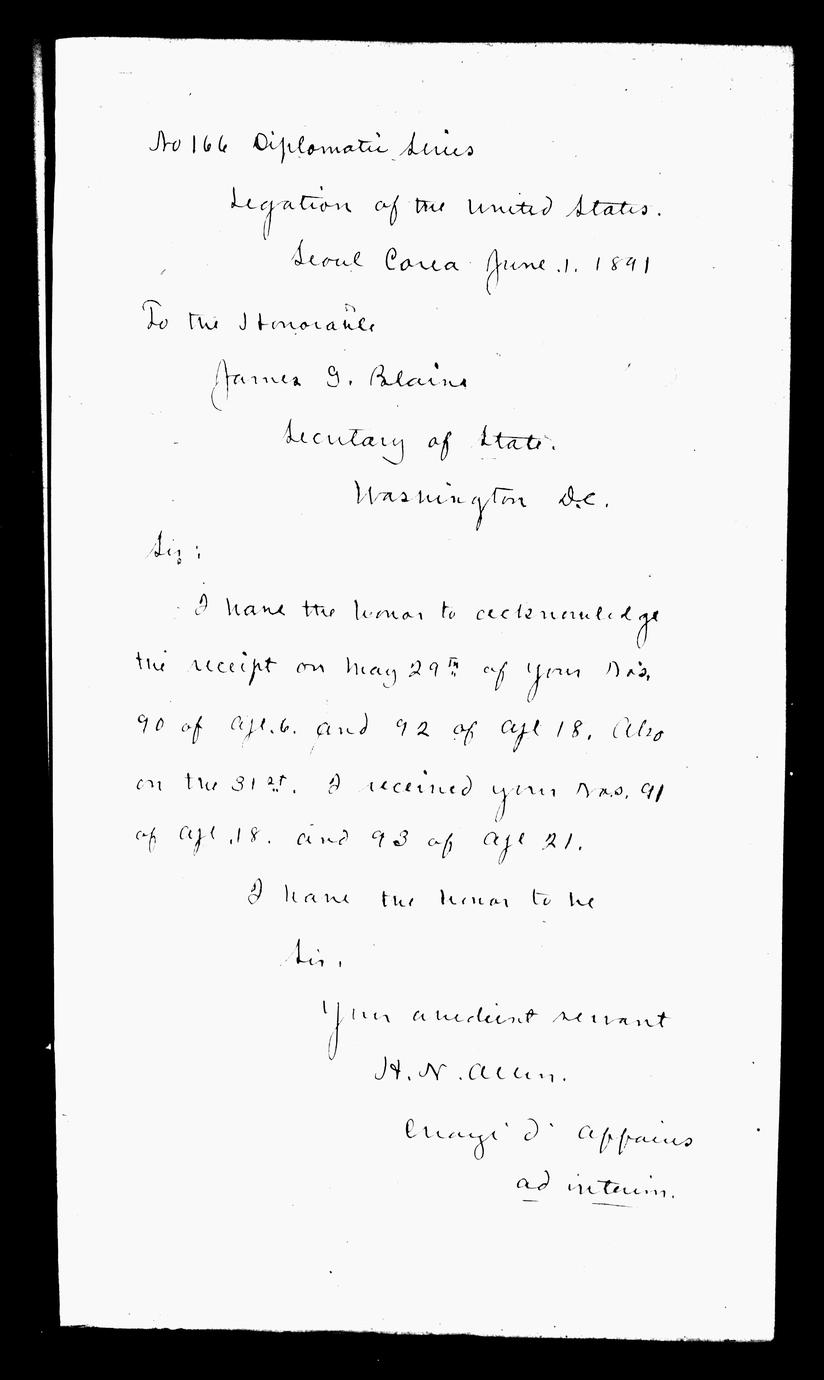 No 166 Diplomatic Series
Legation of the United States.
Seoul Corea June 1. 1891
To the Honorable
James G. Blaine
Secretary of State.
Washington D.C.
Sir:
I have the honor to acknowledge
the receipt on May 29th of your Nos.
90 of Apl. 6. and 92 of Apl 18. Also
on the 31st. I received your Nos. 91
of Apl. 18. and 93 of Apl 21.
I have the honor to be
Sir.
Your obedient servant
H. N. Allen.
Charge d' Affaires
ad interim.